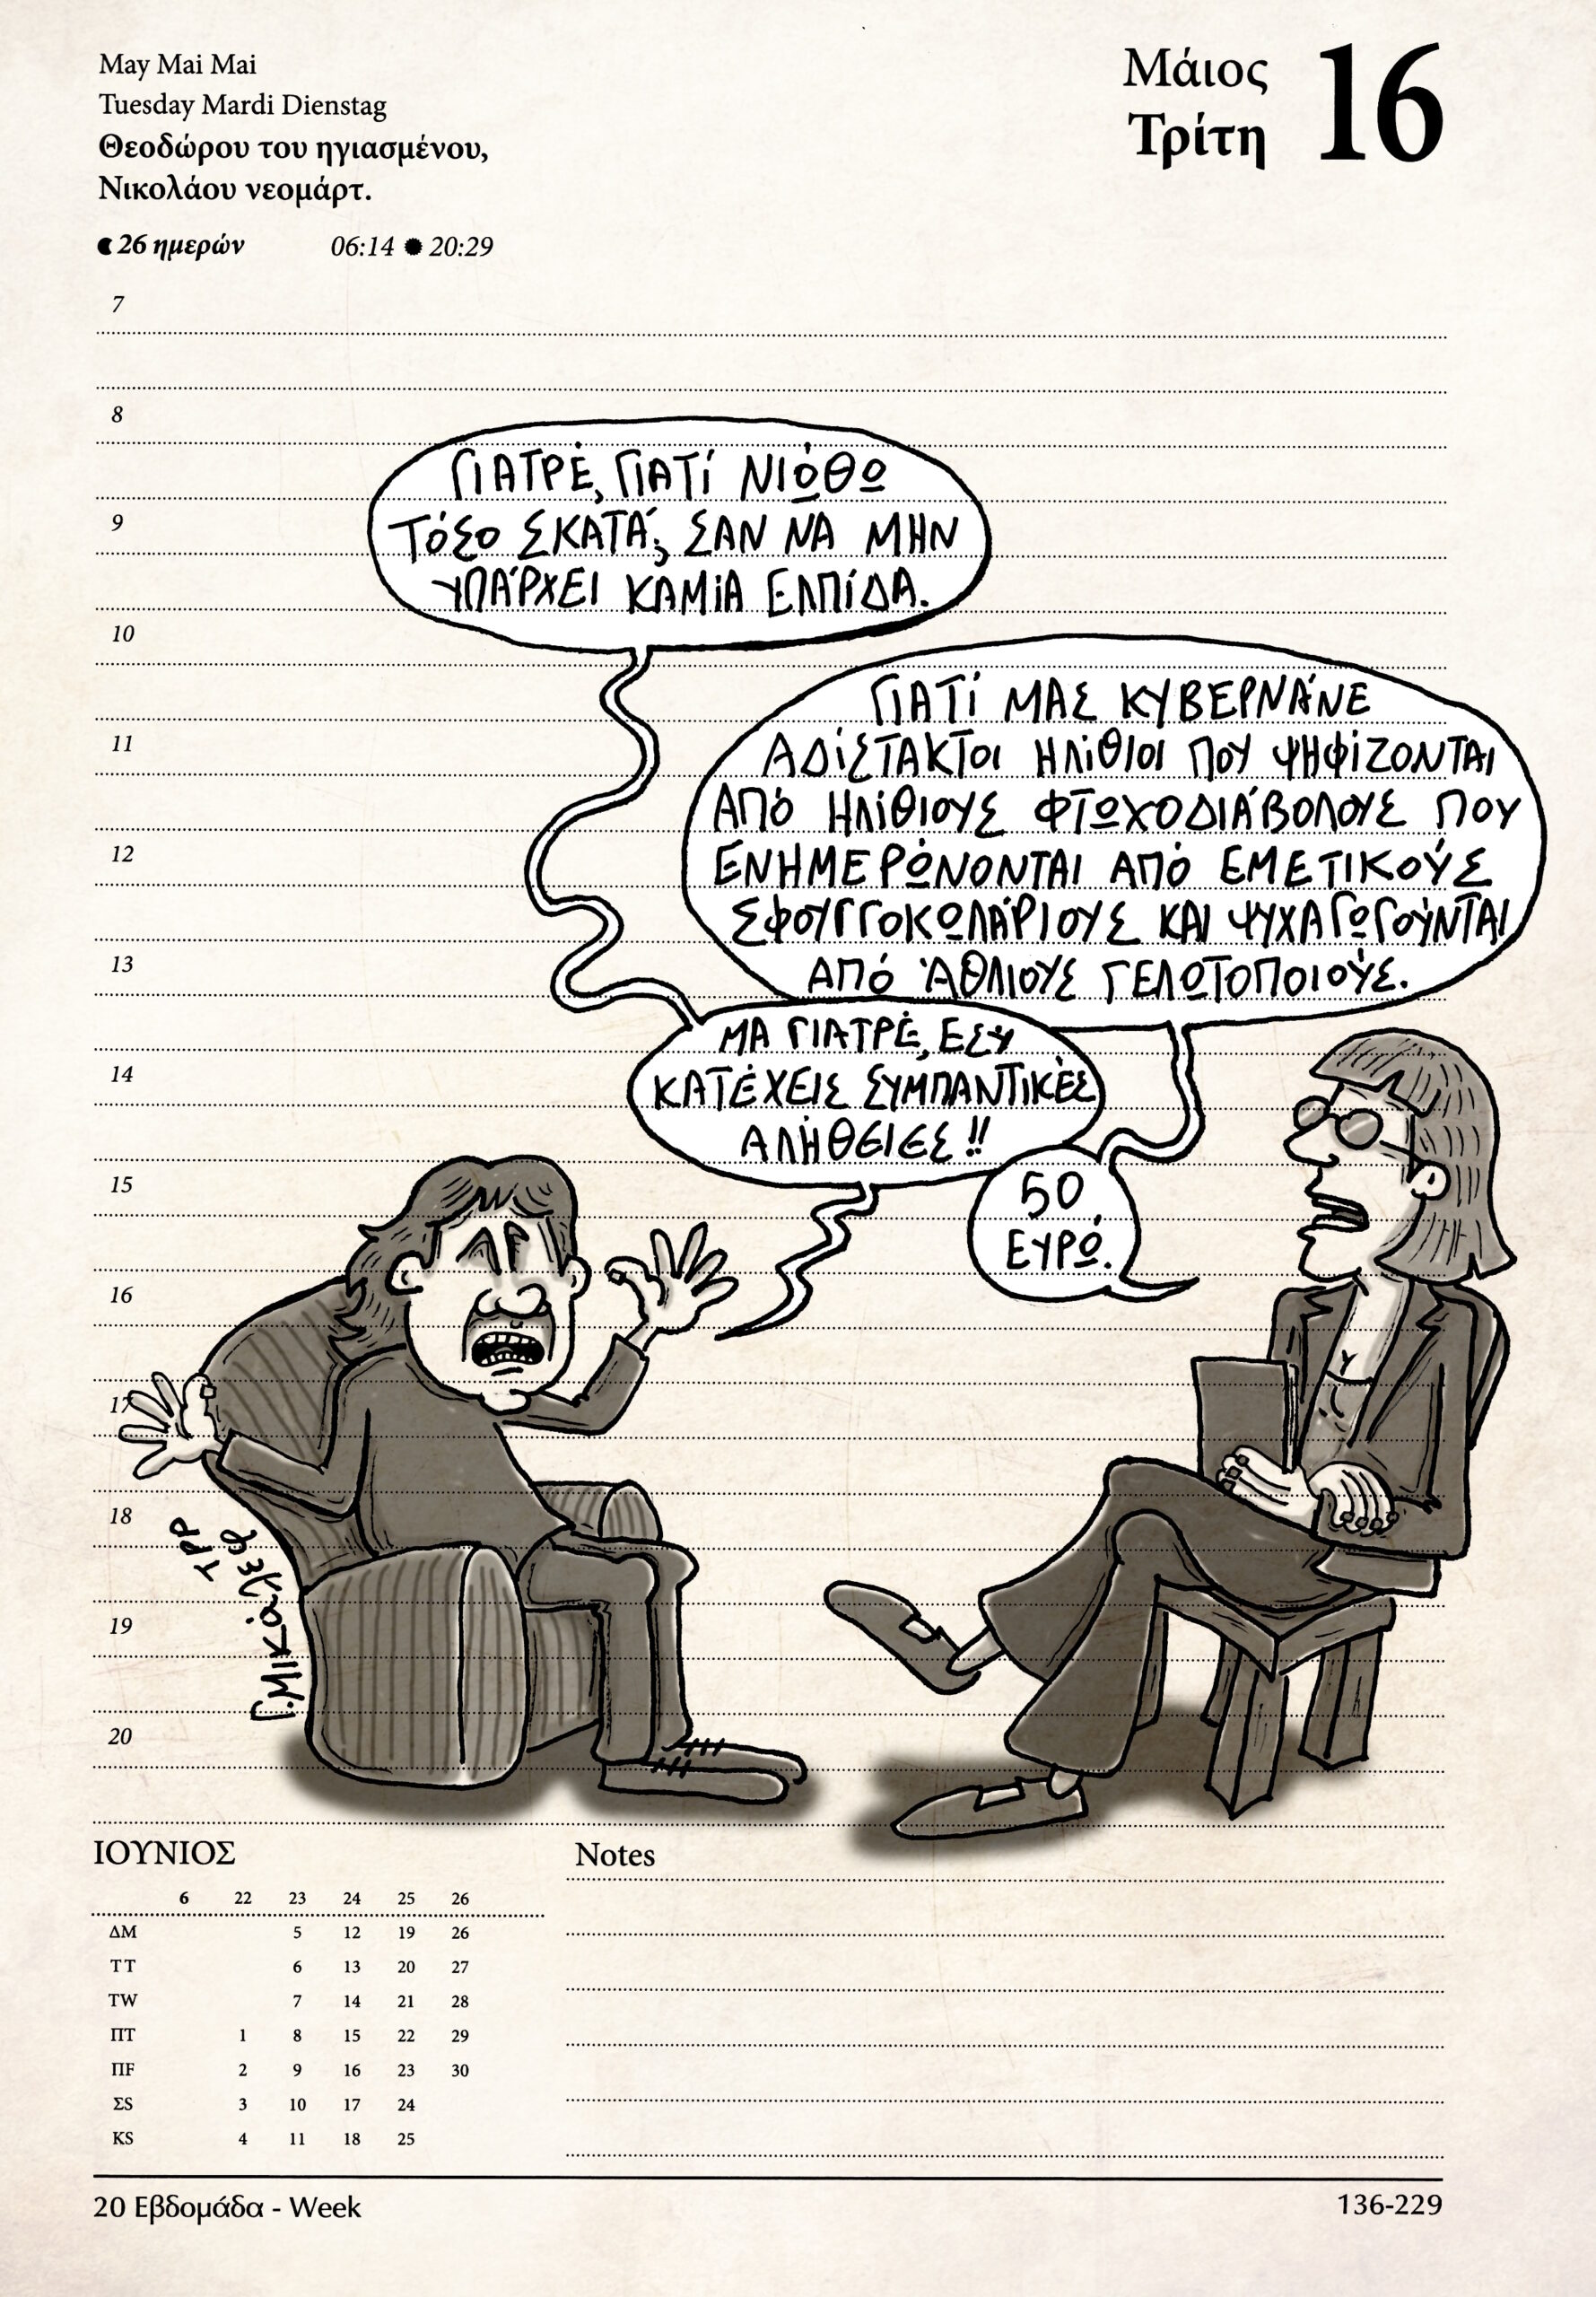 May Mai Mai
Tuesday Mardi Dienstag
Θεοδώρου του ηγιασμένου,
Νικολάου νεομάρτ.
26 ημερών 06:14 20:29
Μάιος
Τρίτη
16
7
8
ΓΙΑΤΡΈ, ΓΙΑΤΊ ΝΙΏΘΩ
ΤΌΣΟ ΣΚΑΤΆ; ΣΑΝ ΝΑ ΜΗΝ
ΥΠΆΡΧΕΙ ΚΑΜΊΑ ΕΛΠΊΔΑ.
9
10
ΓΙΑΤΊ ΜΑΣ ΚΥΒΕΡΝΆΝΕ
ΑΔΊΣΤΑΚΤΟΙ ΗΛΊΘΙΟΙ ΠΟΥ ΨΗΦΊΖΟΝΤΑΙ
ΑΠΌ ΗΛΊΘΙΟΥΣ ΦΤΩΧΟΔΙΆΒΟΛΟΥΣ ΠΟΥ
ΕΝΗΜΕΡΏΝΟΝΤΑΙ ΑΠΌ ΕΜΕΤΙΚΟΎΣ
ΣΦΟΥΓΓΟΚΩΛΆΡΙΟΥΣ ΚΑΙ ΨΥΧΑΓΩΓΟΎΝΤΑΙ
ΑΠΌ ΆΘΛΙΟΥΣ ΓΕΛΩΤΟΠΟΙΟΎΣ.
11
12
13
ΜΑ ΓΙΑΤΡΈ, ΕΣΥ
ΚΑΤΈΧΕΙΣ ΣΥΜΠΑΝΤΙΚΈΣ
ΑΛΉΘΕΙΕΣ!!
14
50
ΕΥΡΏ.
15
16
17
18
19
20
ΙΟΥΝΙΟΣ
6 22 23 24 25 26
ΔΜ 5 12 19 26
ΤΤ 6 13 20 27
ΤW 7 14 21 28
ΠΤ 1 8 15 22 29
ΠF 2 9 16 23 30
ΣS 3 10 17 24
ΚS 4 11 18 25
Notes
20 Εβδομάδα - Week
136-229